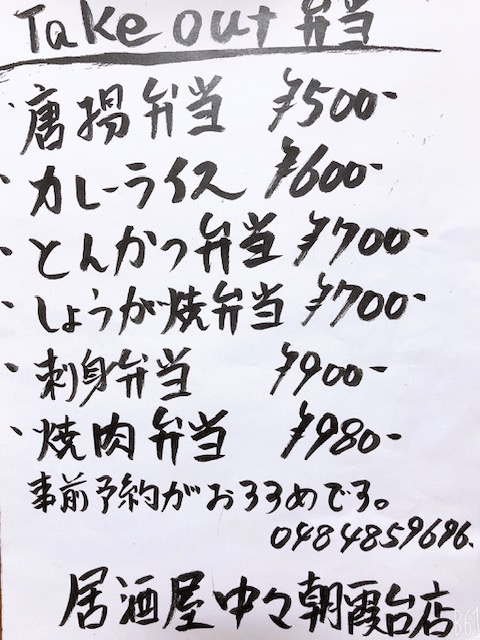 Take out 弁当
・唐揚弁当 ¥500-
・カレーライス ¥600-
・とんかつ弁当 ¥700-
・しょうが焼弁当 ¥700-
・刺身弁当 ¥900-
・焼肉弁当 ¥980-
事前予約がおススめです。
0484859696.
居酒屋中々朝霞台店
B61